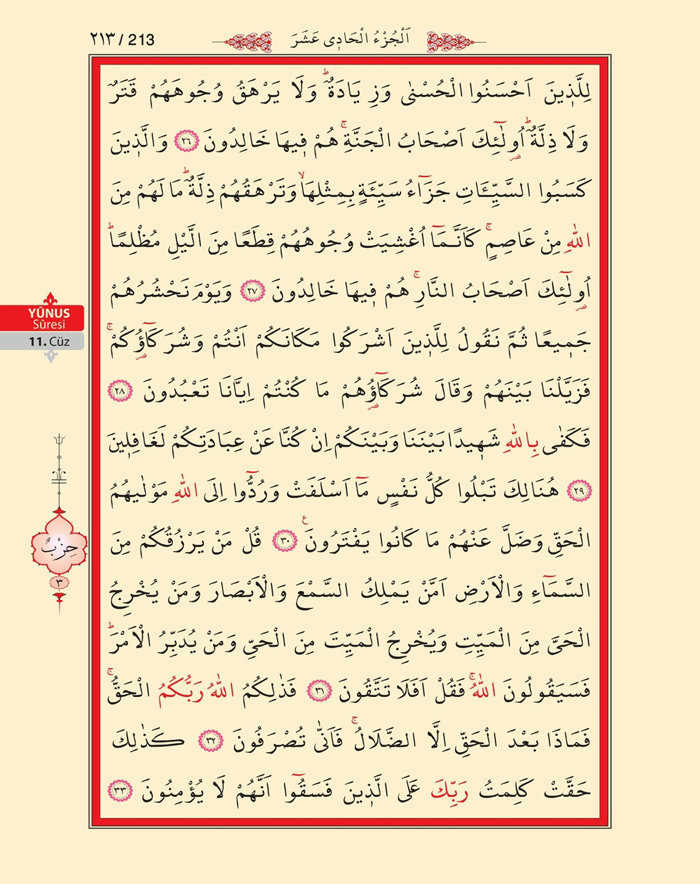 ٢١٣ / 213
اَلْجُزْءُ الْحَادِي عَشَرَ
لِلَّذ۪ينَ اَحْسَنُوا الْحُسْنٰى وَزِيَادَةٌۜ وَلَا يَرْهَقُ وُجُوهَهُمْ قَتَرٌ
وَلَا ذِلَّةٌۜ اُو۬لٰٓئِكَ اَصْحَابُ الْجَنَّةِۚ هُمْ ف۪يهَا خَالِدُونَ ﴿٢٦﴾ وَالَّذ۪ينَ
كَسَبُوا السَّيِّـَٔاتِ جَزَٓاءُ سَيِّئَةٍ بِمِثْلِهَاۙ وَتَرْهَقُهُمْ ذِلَّةٌۜ مَا لَهُمْ مِنَ
اللّٰهِ مِنْ عَاصِمٍۚ كَاَنَّمَٓا اُغْشِيَتْ وُجُوهُهُمْ قِطَعًا مِنَ الَّيْلِ مُظْلِمًاۜ
اُو۬لٰٓئِكَ اَصْحَابُ النَّارِۚ هُمْ ف۪يهَا خَالِدُونَ ﴿٢٧﴾ وَيَوْمَ نَحْشُرُهُمْ
جَم۪يعًا ثُمَّ نَقُولُ لِلَّذ۪ينَ اَشْرَكُوا مَكَانَكُمْ اَنْتُمْ وَشُرَكَٓاؤُ۬كُمْۚ
فَزَيَّلْنَا بَيْنَهُمْ وَقَالَ شُرَكَٓاؤُ۬هُمْ مَا كُنْتُمْ اِيَّانَا تَعْبُدُونَ ﴿٢٨﴾
فَكَفٰى بِاللّٰهِ شَه۪يدًا بَيْنَنَا وَبَيْنَكُمْ اِنْ كُنَّا عَنْ عِبَادَتِكُمْ لَغَافِل۪ينَ
﴿٢٩﴾ هُنَالِكَ تَبْلُوا كُلُّ نَفْسٍ مَٓا اَسْلَفَتْ وَرُدُّٓوا اِلَى اللّٰهِ مَوْلٰيهُمُ
الْحَقِّ وَضَلَّ عَنْهُمْ مَا كَانُوا يَفْتَرُونَ۟ ﴿٣٠﴾ قُلْ مَنْ يَرْزُقُكُمْ مِنَ
السَّمَٓاءِ وَالْاَرْضِ اَمَّنْ يَمْلِكُ السَّمْعَ وَالْاَبْصَارَ وَمَنْ يُخْرِجُ
الْحَيَّ مِنَ الْمَيِّتِ وَيُخْرِجُ الْمَيِّتَ مِنَ الْحَيِّ وَمَنْ يُدَبِّرُ الْاَمْرَۜ
فَسَيَقُولُونَ اللّٰهُۚ فَقُلْ اَفَلَا تَتَّقُونَ ﴿٣١﴾ فَذٰلِكُمُ اللّٰهُ رَبُّكُمُ الْحَقُّۚ
فَمَاذَا بَعْدَ الْحَقِّ اِلَّا الضَّلَالُۚ فَاَنّٰى تُصْرَفُونَ ﴿٣٢﴾ كَذٰلِكَ
حَقَّتْ كَلِمَتُ رَبِّكَ عَلَى الَّذ۪ينَ فَسَقُٓوا اَنَّهُمْ لَا يُؤْمِنُونَ ﴿٣٣﴾
YÛNUS
Sûresi
11. Cüz
حِزْبٌ
٣